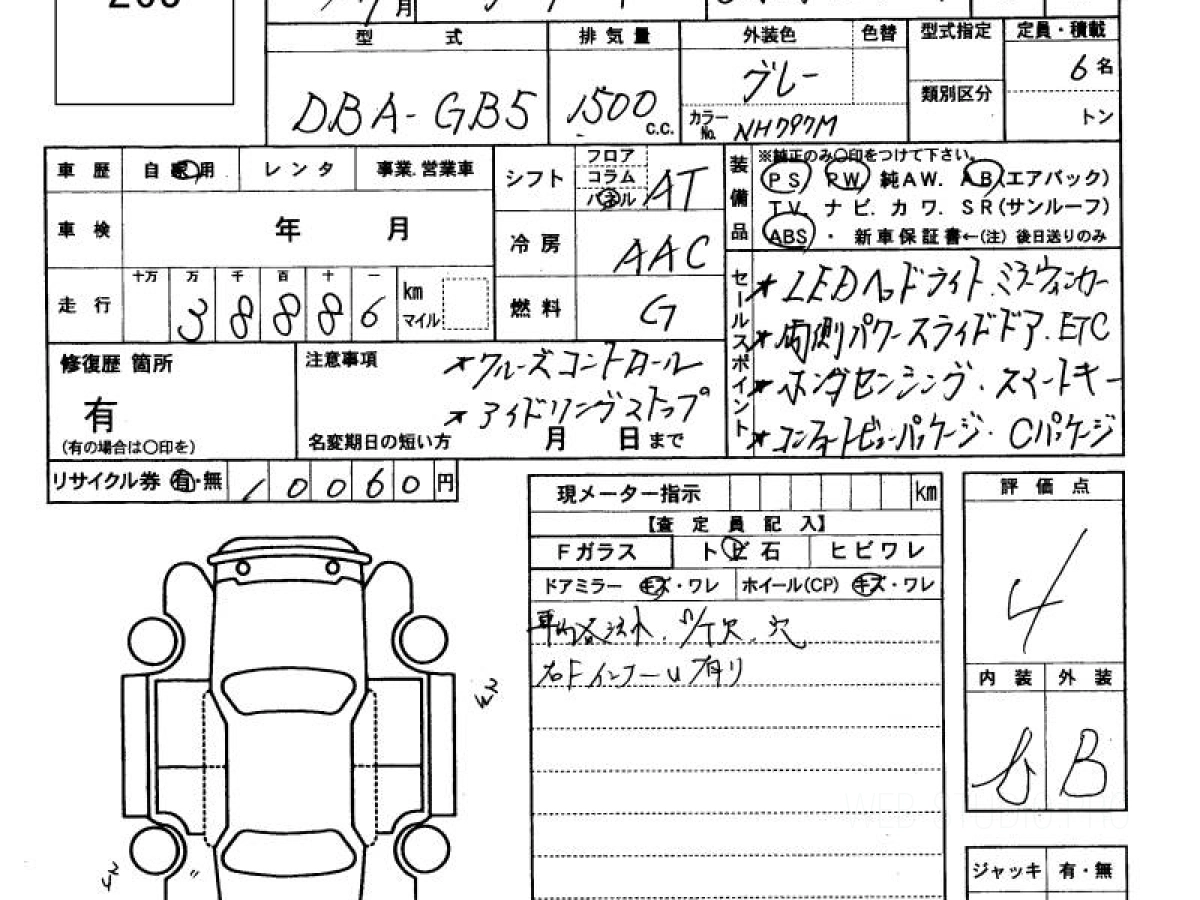 月
型式 排気量 外装色 色替 型式指定 定員・積載
DBA-GB5 1500 c.c. グレー カラーNo. NH797M 類別区分 6名
トン
車歴 自家用 レンタ 事業.営業車
車検 年 月
走行 十万 万 千 百 十 一
3 8 8 8 6 km マイル
シフト フロア コラム パネル AT
冷房 AAC
燃料 G
装備品 ※純正のみ○印をつけて下さい。
PS PW 純AW. AB(エアバック)
TV. ナビ. カワ. SR(サンルーフ)
ABS・新車保証書←(注)後日送りのみ
セールスポイント
*LEDヘッドライト.ミラーウィンカー
*両側パワースライドドア.ETC
*ホンダセンシング・スマートキー
*コンフォートビューパッケージ・Cパッケージ
修復歴 箇所
有
(有の場合は○印を)
注意事項 *クルーズコントロール
*アイドリングストップ
名変期日の短い方 月 日まで
リサイクル券 有・無 1 0 0 6 0 円
現メーター指示 km
【査定員記入】
Fガラス トビ石 ヒビワレ
ドアミラー キズ・ワレ ホイール(CP) キズ・ワレ
穴
右Fインナーu有り
評価点
4
内装 外装
b B
ジャッキ 有・無